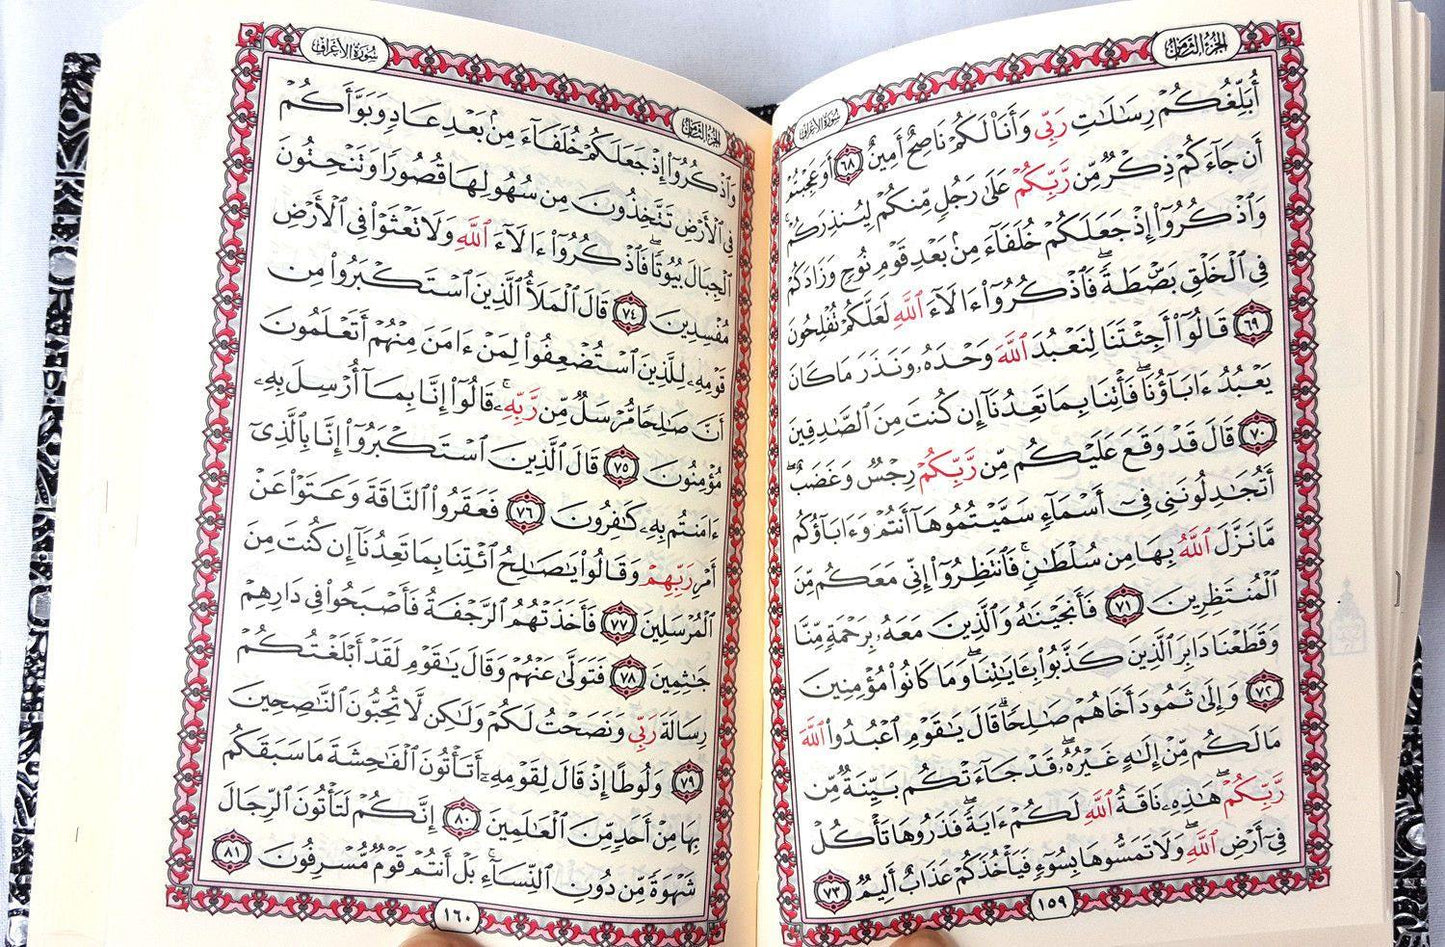 الجزء الثامن
سورة الأعراف
أُبَلِّغُكُمْ رِسَـٰلَـٰتِ رَبِّى وَأَنَا۠ لَكُمْ نَاصِحٌ أَمِينٌ ٦٨ أَوَعَجِبْتُمْ
أَن جَآءَكُمْ ذِكْرٌ مِّن رَّبِّكُمْ عَلَىٰ رَجُلٍ مِّنكُمْ لِيُنذِرَكُمْ ۚ
وَٱذْكُرُوٓا۟ إِذْ جَعَلَكُمْ خُلَفَآءَ مِنۢ بَعْدِ قَوْمِ نُوحٍ وَزَادَكُمْ
فِى ٱلْخَلْقِ بَصْۜطَةً ۖ فَٱذْكُرُوٓا۟ ءَالَآءَ ٱللَّهِ لَعَلَّكُمْ تُفْلِحُونَ
٦٩ قَالُوٓا۟ أَجِئْتَنَا لِنَعْبُدَ ٱللَّهَ وَحْدَهُۥ وَنَذَرَ مَا كَانَ
يَعْبُدُ ءَابَآؤُنَا ۖ فَأْتِنَا بِمَا تَعِدُنَآ إِن كُنتَ مِنَ ٱلصَّـٰدِقِينَ
٧٠ قَالَ قَدْ وَقَعَ عَلَيْكُم مِّن رَّبِّكُمْ رِجْسٌ وَغَضَبٌ ۖ
أَتُجَـٰدِلُونَنِى فِىٓ أَسْمَآءٍ سَمَّيْتُمُوهَآ أَنتُمْ وَءَابَآؤُكُم
مَّا نَزَّلَ ٱللَّهُ بِهَا مِن سُلْطَـٰنٍ ۚ فَٱنتَظِرُوٓا۟ إِنِّى مَعَكُم مِّنَ
ٱلْمُنتَظِرِينَ ٧١ فَأَنجَيْنَـٰهُ وَٱلَّذِينَ مَعَهُۥ بِرَحْمَةٍ مِّنَّا
وَقَطَعْنَا دَابِرَ ٱلَّذِينَ كَذَّبُوا۟ بِـَٔايَـٰتِنَا ۖ وَمَا كَانُوا۟ مُؤْمِنِينَ
٧٢ وَإِلَىٰ ثَمُودَ أَخَاهُمْ صَـٰلِحًا ۗ قَالَ يَـٰقَوْمِ ٱعْبُدُوا۟ ٱللَّهَ
مَا لَكُم مِّنْ إِلَـٰهٍ غَيْرُهُۥ ۖ قَدْ جَآءَتْكُم بَيِّنَةٌ مِّن
رَّبِّكُمْ ۖ هَـٰذِهِۦ نَاقَةُ ٱللَّهِ لَكُمْ ءَايَةً ۖ فَذَرُوهَا تَأْكُلْ
فِىٓ أَرْضِ ٱللَّهِ ۖ وَلَا تَمَسُّوهَا بِسُوٓءٍ فَيَأْخُذَكُمْ عَذَابٌ أَلِيمٌ ٧٣
١٥٩
الجزء الثامن
سورة الأعراف
وَٱذْكُرُوٓا۟ إِذْ جَعَلَكُمْ خُلَفَآءَ مِنۢ بَعْدِ عَادٍ وَبَوَّأَكُمْ
فِى ٱلْأَرْضِ تَتَّخِذُونَ مِن سُهُولِهَا قُصُورًا وَتَنْحِتُونَ
ٱلْجِبَالَ بُيُوتًا ۖ فَٱذْكُرُوٓا۟ ءَالَآءَ ٱللَّهِ وَلَا تَعْثَوْا۟ فِى ٱلْأَرْضِ
مُفْسِدِينَ ٧٤ قَالَ ٱلْمَلَأُ ٱلَّذِينَ ٱسْتَكْبَرُوا۟ مِن
قَوْمِهِۦ لِلَّذِينَ ٱسْتُضْعِفُوا۟ لِمَنْ ءَامَنَ مِنْهُمْ أَتَعْلَمُونَ
أَنَّ صَـٰلِحًا مُّرْسَلٌ مِّن رَّبِّهِۦ ۚ قَالُوٓا۟ إِنَّا بِمَآ أُرْسِلَ بِهِۦ
مُؤْمِنُونَ ٧٥ قَالَ ٱلَّذِينَ ٱسْتَكْبَرُوٓا۟ إِنَّا بِٱلَّذِىٓ
ءَامَنتُم بِهِۦ كَـٰفِرُونَ ٧٦ فَعَقَرُوا۟ ٱلنَّاقَةَ وَعَتَوْا۟ عَنْ
أَمْرِ رَبِّهِمْ وَقَالُوا۟ يَـٰصَـٰلِحُ ٱئْتِنَا بِمَا تَعِدُنَآ إِن كُنتَ مِنَ
ٱلْمُرْسَلِينَ ٧٧ فَأَخَذَتْهُمُ ٱلرَّجْفَةُ فَأَصْبَحُوا۟ فِى دَارِهِمْ
جَـٰثِمِينَ ٧٨ فَتَوَلَّىٰ عَنْهُمْ وَقَالَ يَـٰقَوْمِ لَقَدْ أَبْلَغْتُكُمْ
رِسَالَةَ رَبِّى وَنَصَحْتُ لَكُمْ وَلَـٰكِن لَّا تُحِبُّونَ ٱلنَّـٰصِحِينَ
٧٩ وَلُوطًا إِذْ قَالَ لِقَوْمِهِۦٓ أَتَأْتُونَ ٱلْفَـٰحِشَةَ مَا سَبَقَكُم
بِهَا مِنْ أَحَدٍ مِّنَ ٱلْعَـٰلَمِينَ ٨٠ إِنَّكُمْ لَتَأْتُونَ ٱلرِّجَالَ
شَهْوَةً مِّن دُونِ ٱلنِّسَآءِ ۚ بَلْ أَنتُمْ قَوْمٌ مُّسْرِفُونَ ٨١
١٦٠